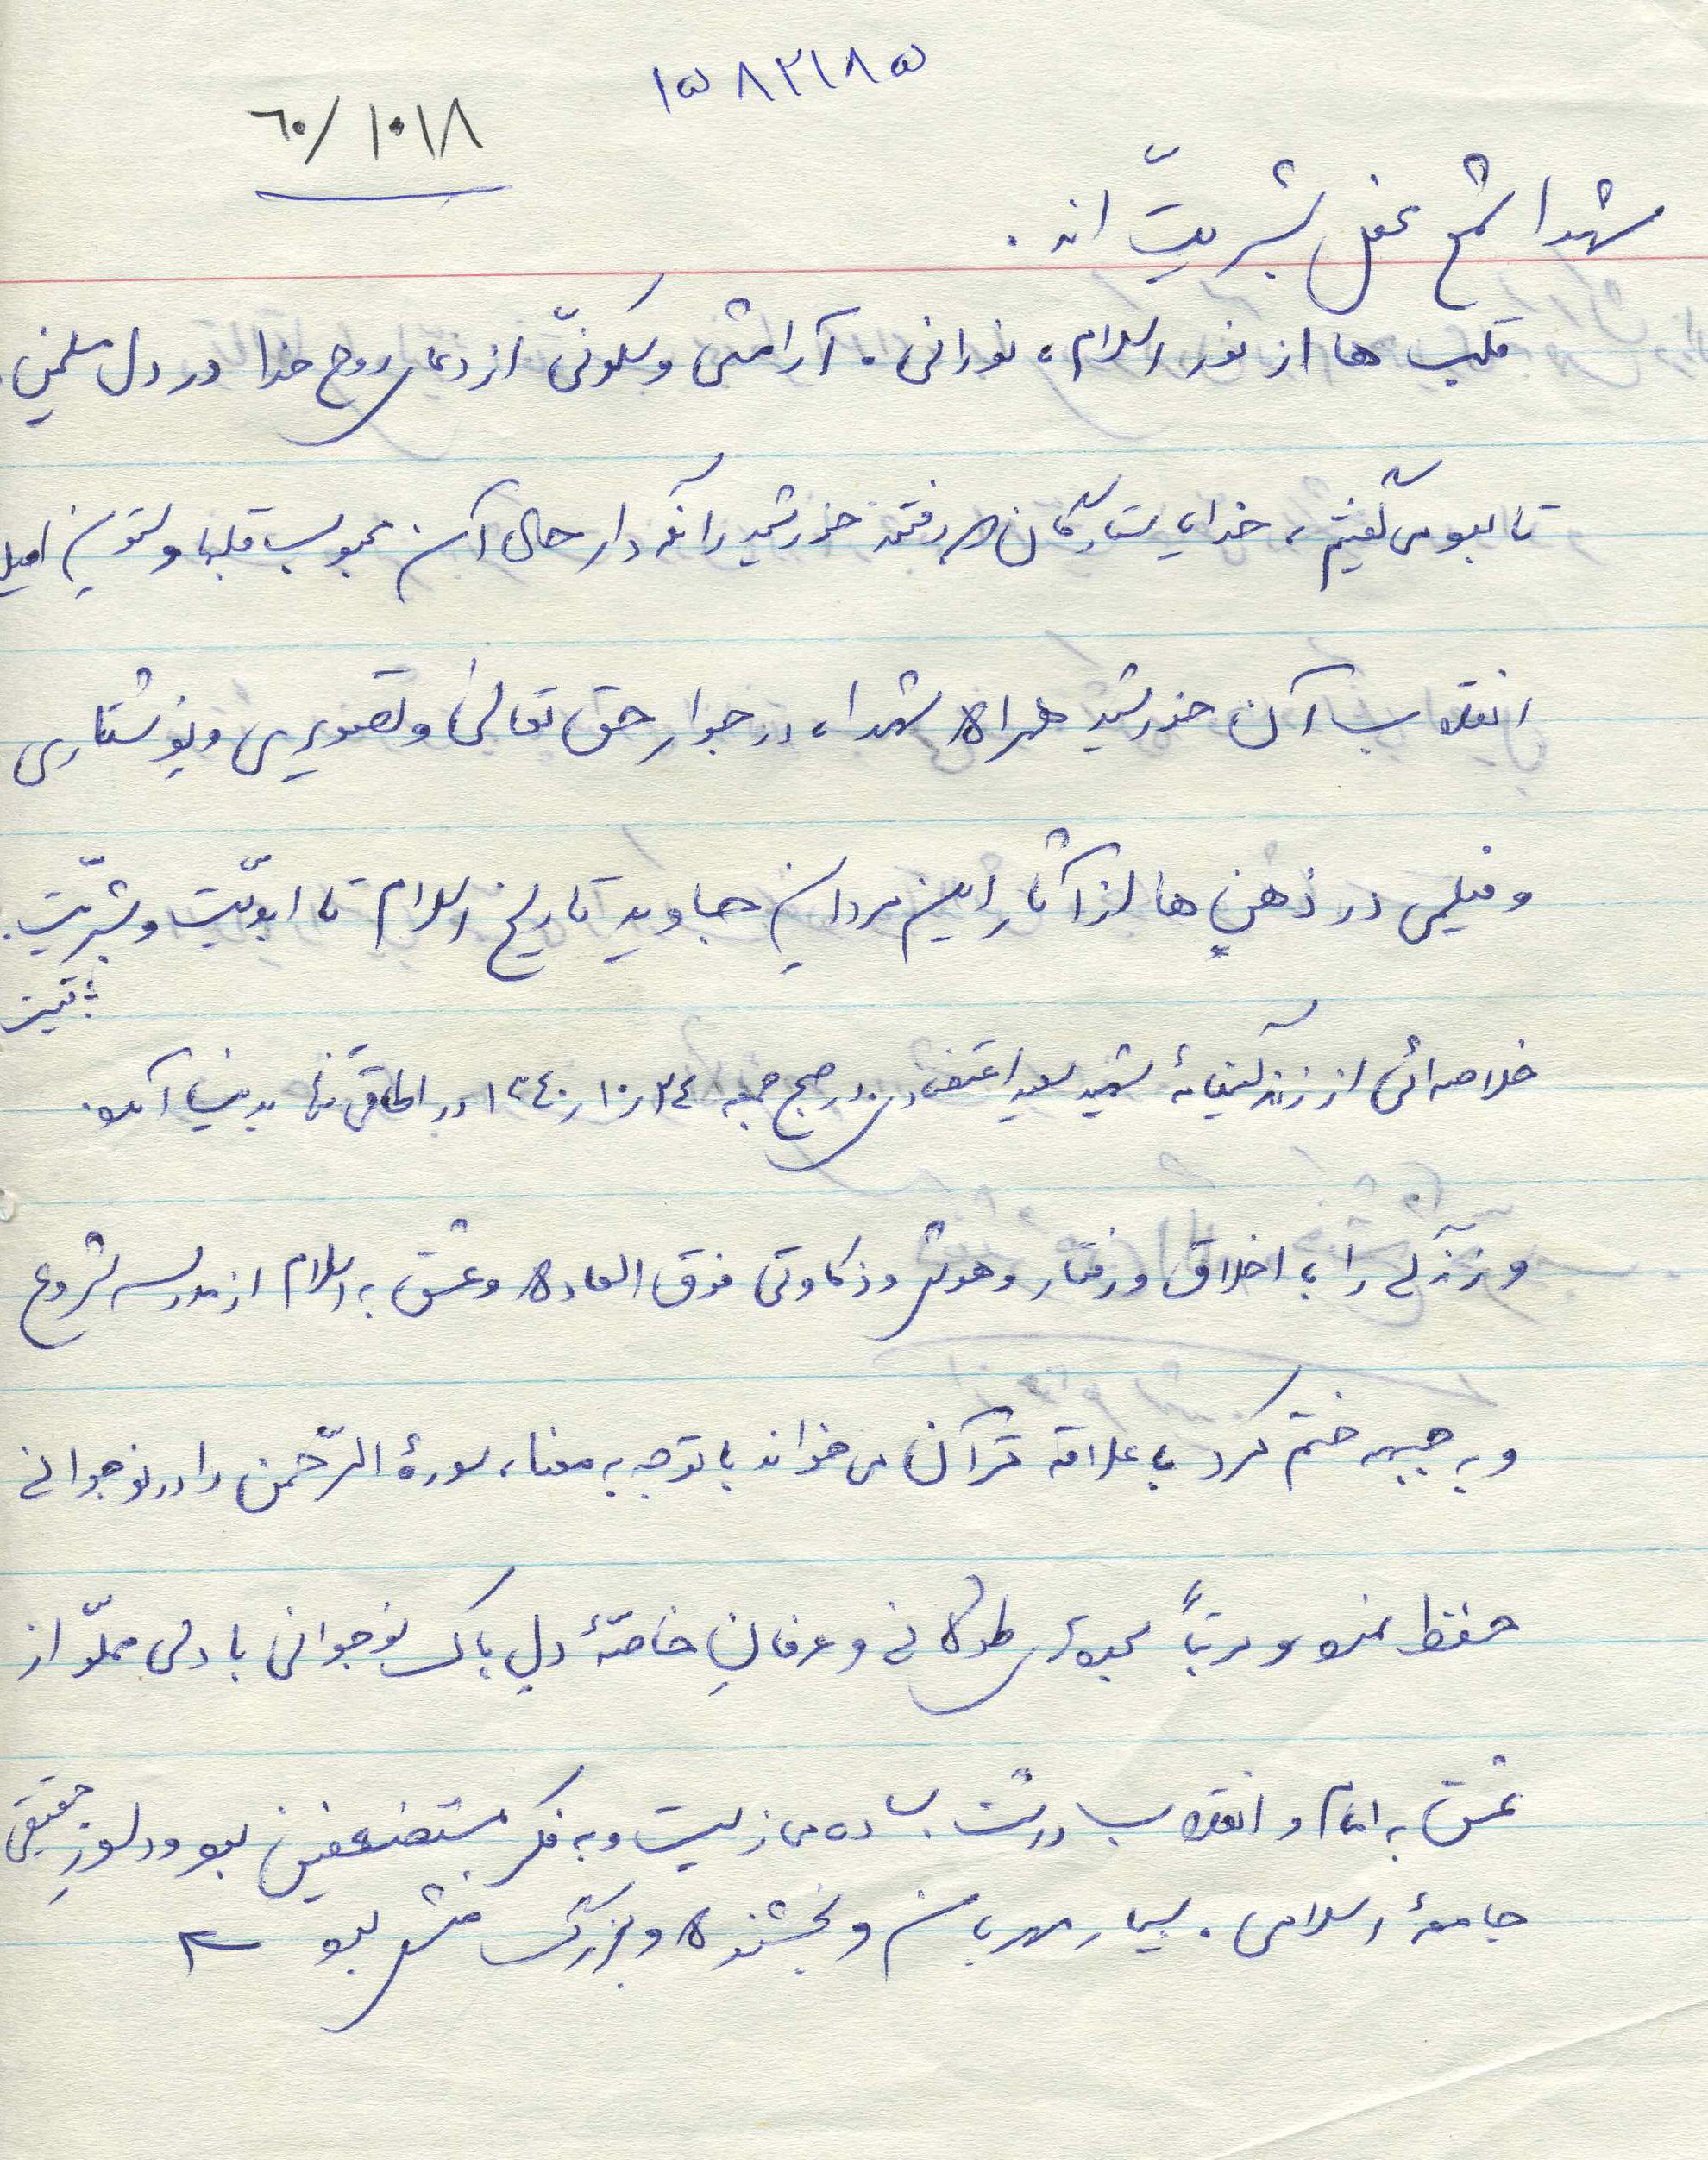 ۱۵۸۲۱۸۵
۶۰/۱۰۱۸
شهدا شمع محفل بشریتّ اند.
قلب ها از نور اسلام، نورانی. آرامشی و سکونی از دعای روح خدا در دل مسلمین.
تا بود می گفتیم، خدایا ستارگان رفتند خورشید را نگه دار حال آن محبوب قلبها و امید
انقلاب آن خورشید همراه شهداء در جوار حق تعالی و تصویری و نوشتاری
و فیلمی در ذهنِ ها از آثار این مردانِ جاوید تاریخ اسلام تا ابدیّت و بشریّت.
ثبت
خلاصه ائی از زندگینامۀ شهید سعید در صبح جمعه ۱۳۴۰/۱۰/۲۴ در اطاقی بدنیا آمد.
و زندگی را با اخلاق و رفتار و هوش و ذکاوتی فوق العاده و عشق به اسلام از مدرسه شروع
و به جبهه ختم کرد با علاقه قرآن می خواند با توجه به معنا، سورۀ الرّحمن را در نوجوانی
حفظ نمود و مرتباً سجده های طولانی و عرفانِ خاصّۀ دلِ پاک نوجوانی با دلی مملوّ از
عشق به امام و انقلاب داشت ساده می زیست و به فکر مستضعفین بود و دلسوزِ حقیقی
جامعۀ اسلامی. بسیار مهربان و بخشنده و بزرگ منش بود